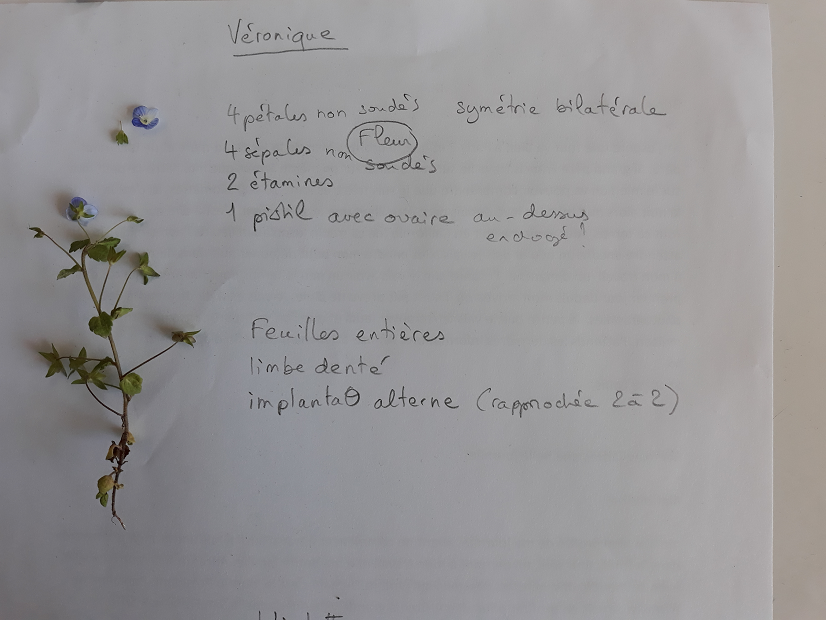 Véronique
4 pétales non soudés symétrie bilatérale
Fleur
4 sépales non soudés
2 étamines
1 pistil avec ovaire au-dessus
Feuilles entières
limbe denté
implantaθ alterne (rapprochée 2 à 2)